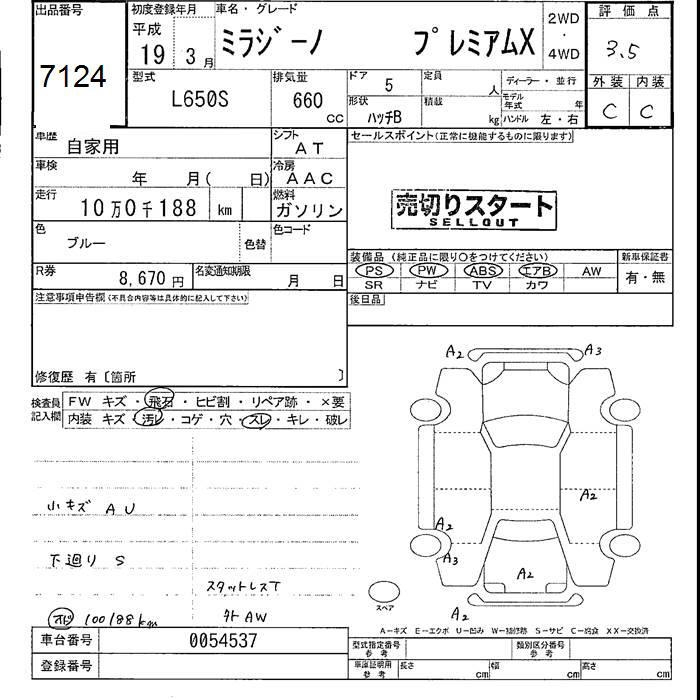 出品番号
7124
初度登録年月
平成
19 3月
車名・グレード
ミラジーノ プレミアムX
2WD
・
4WD
評価点
3.5
外装 内装
C C
型式
L650S
排気量
660
CC
ドア 5
形状 ハッチB
定員 人
積載 kg
ディーラー・並行
モデル年式 年
ハンドル 左・右
車歴 自家用
シフト AT
セールスポイント(正常に機能するものに限ります)
車検 年 月( 日)
冷房 AAC
走行 10万0千188 km
燃料 ガソリン
売切りスタート
SELLOUT
色 ブルー
色替
色コード
装備品 (純正品に限り○をつけてください)
新車保証書
有・無
PS PW ABS エアB AW
SR ナビ TV カワ
R券 8,670 円
名変通知期限 月 日
後日品
注意事項申告欄(不具合内容等は具体的に記入して下さい)
修復歴 有〔箇所 〕
検査員記入欄
FW キズ・飛石・ヒビ割・リペア跡・×要
内装 キズ・汚レ・コゲ・穴・スレ・キレ・破レ
A2 A3
A2
A2
A3
A2
A2
小キズ AU
下廻り S
スタットレスT
メーター 100188km
外AW
スペア
A-キズ E-エクボ U-凹み W-補修跡 S-サビ C-腐食 XX-交換済
車台番号 0054537
登録番号
型式指定番号
参考
類別区分番号
参考
車庫証明用
参考
長さ cm
幅 cm
高さ cm